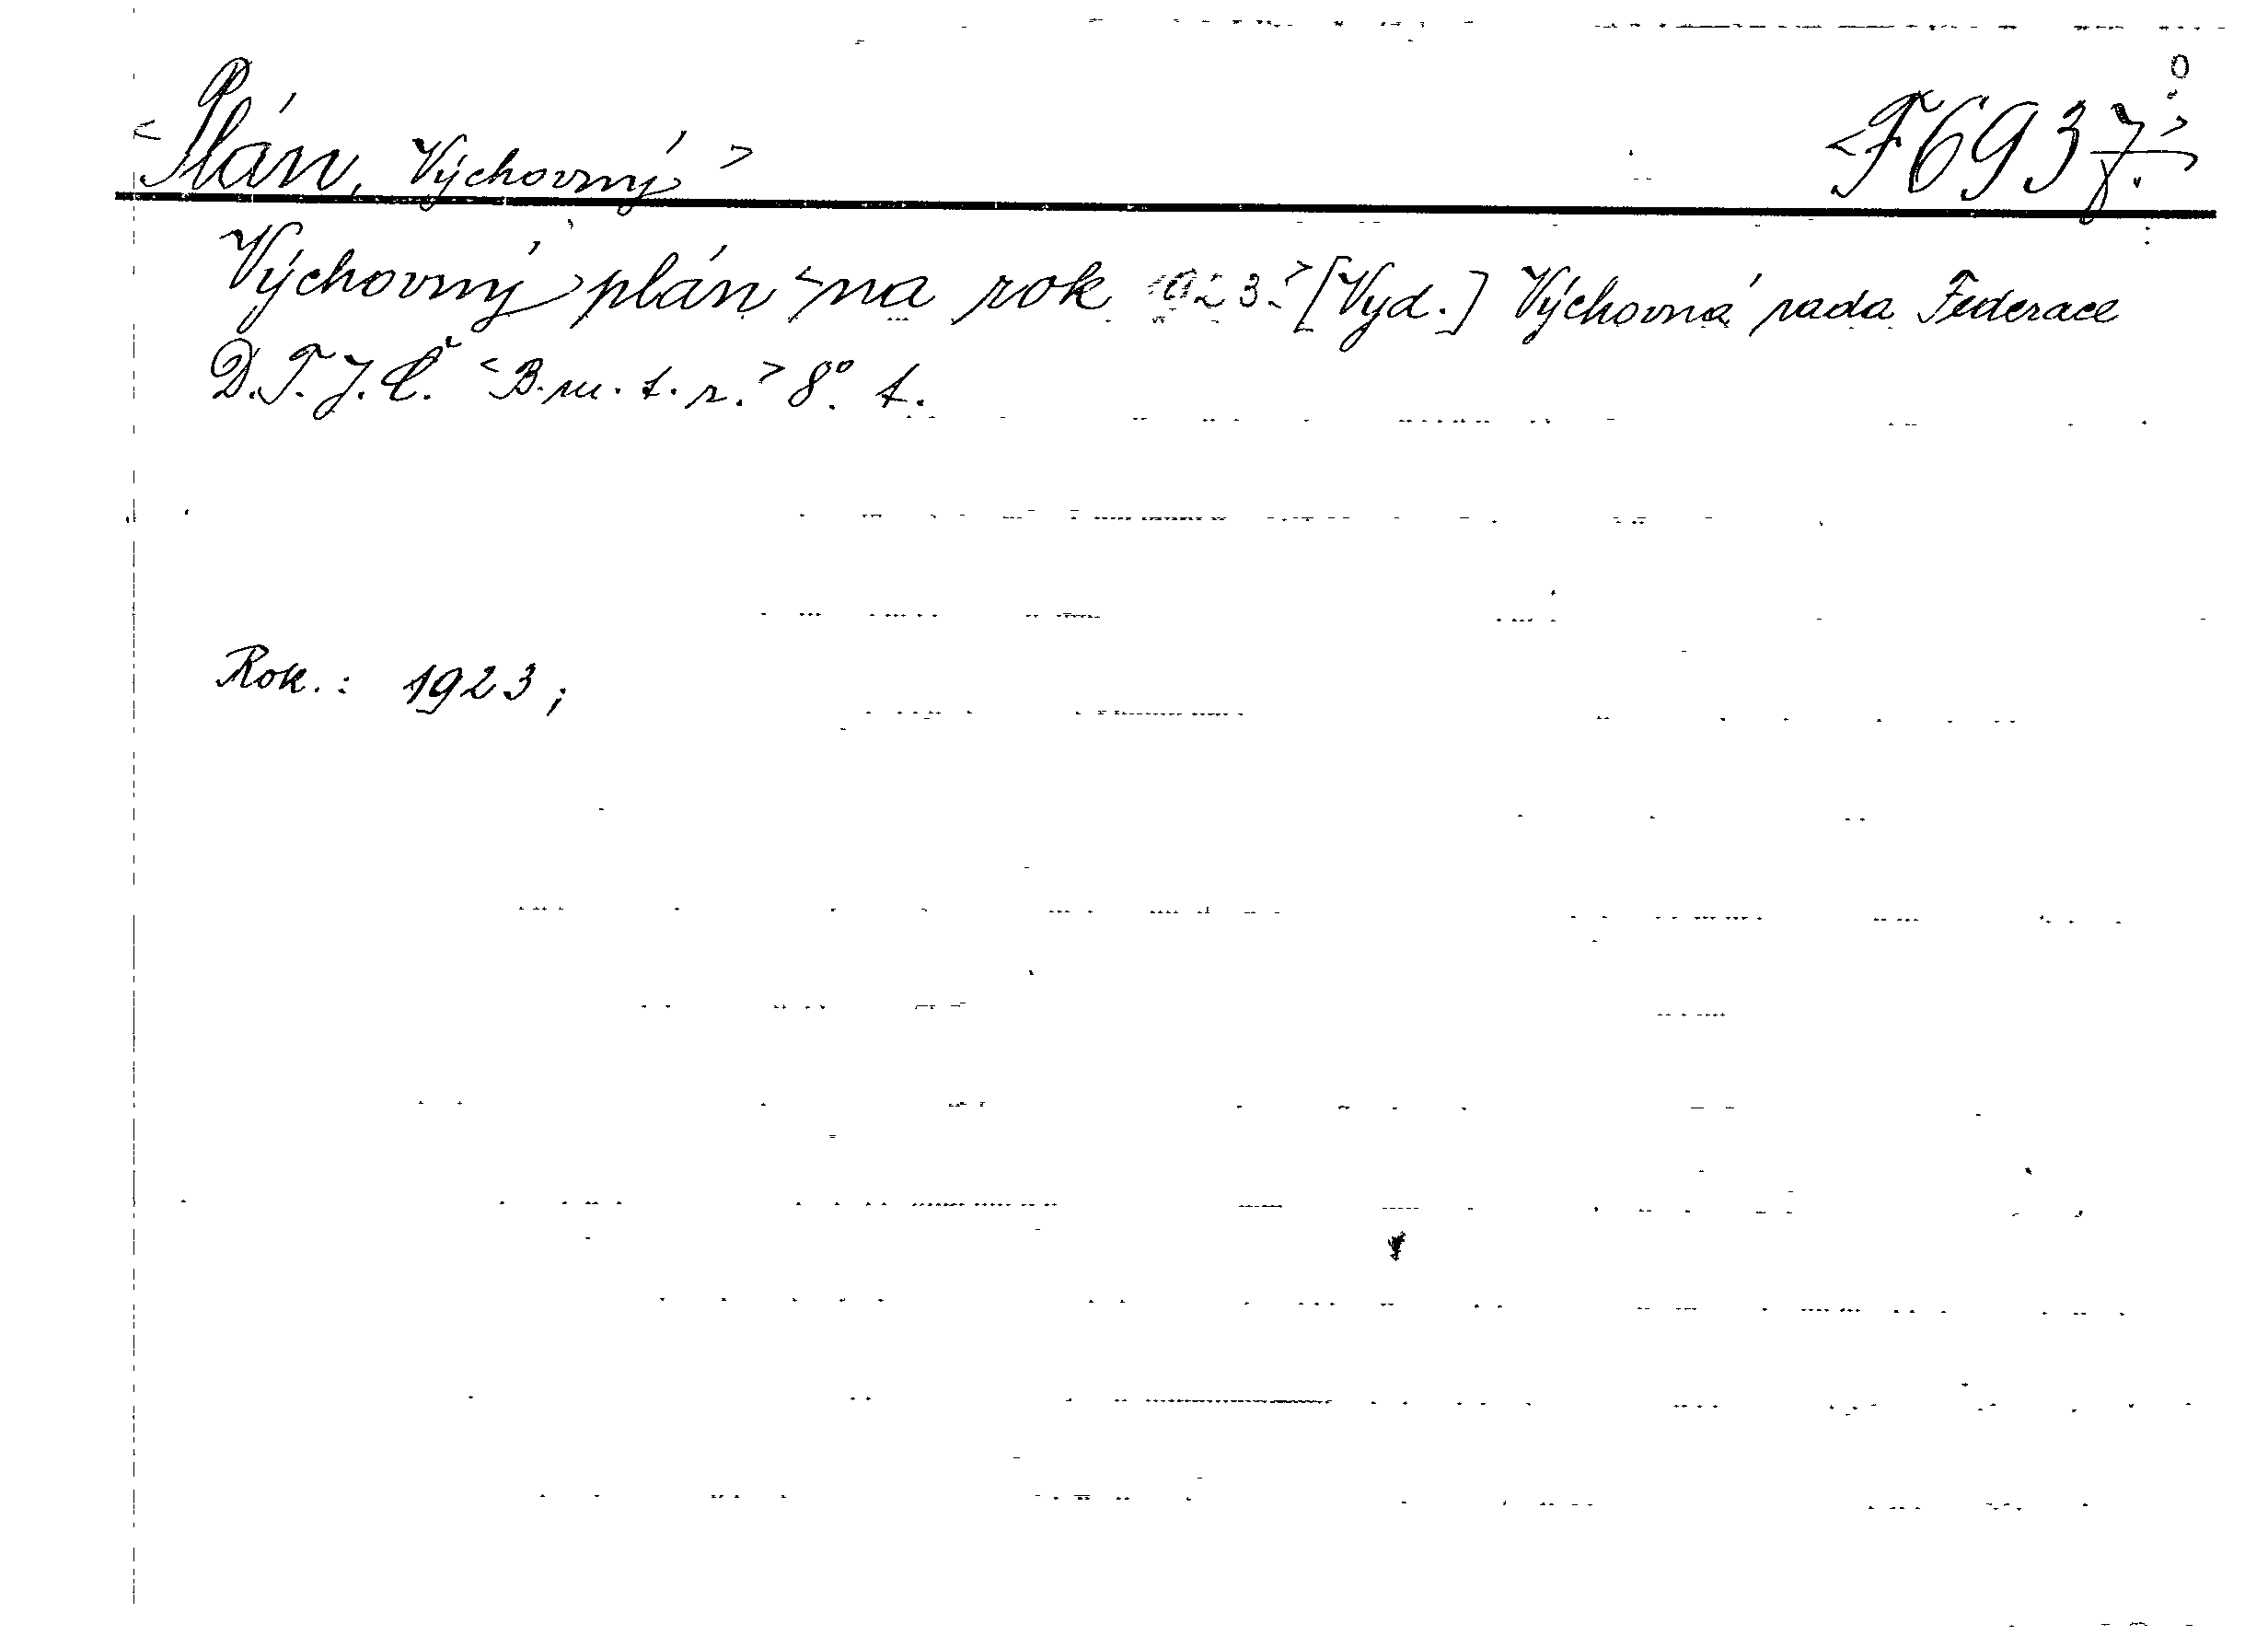 <Plán, Výchovný> <F 6937.>
Výchovný plán <na rok 1923.> [Vyd.] Výchovná rada Federace
D.T.J.Č. <B.m.t.r.> 8°. t.
Rok.: 1923;